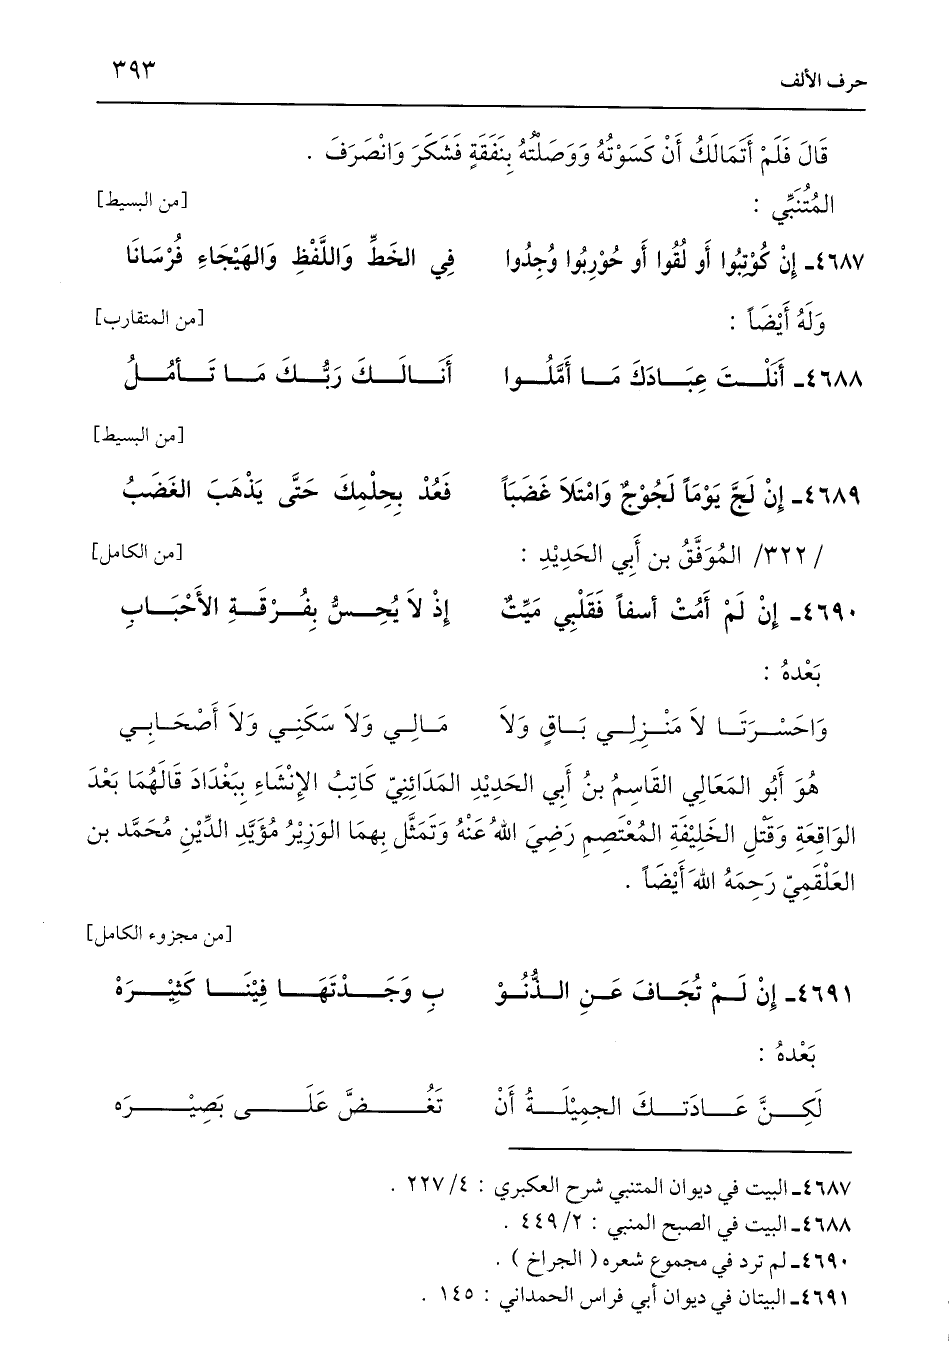 حرف الألف ٣٩٣
قَالَ فَلَمْ أَتَمَالَكُ أَنْ كَسَوْتُهُ وَوَصَلْتُهُ بِنَفَقَةٍ فَشَكَرَ وَانْصَرَفَ .
المُتَنَبِّي : [من البسيط]
٤٦٨٧ـ إِنْ كُوْتِبُوا أَو لُقُوا أَو حُوْرِبُوا وُجِدُوا فِي الخَطِّ وَاللَّفْظِ وَالهَيْجَاءِ فُرْسَانَا
وَلَهُ أَيْضَاً : [من المتقارب]
٤٦٨٨ـ أَنَلْتَ عِبَادَكَ مَا أَمَّلُوا أَنَالَكَ رَبُّكَ مَا تَأمُلُ
[من البسيط]
٤٦٨٩ـ إِنْ لَجَّ يَوْمَاً لَجُوْجٌ وَامْتَلاَ غَضَبَاً فَعُدْ بِحِلْمِكَ حَتَّى يَذْهَبَ الغَضَبُ
/ ٣٢٢/ المُوَفَّقُ بن أَبِي الحَدِيْدِ : [من الكامل]
٤٦٩٠ـ إِنْ لَمْ أَمُتْ أسفاً فَقَلْبِي مَيِّتٌ إِذْ لاَ يُحِسُّ بِفُرْقَةِ الأَحْبَابِ
بَعْدهُ :
وَاحَسْرَتَا لاَ مَنْزِلِي بَاقٍ وَلاَ مَالِي وَلاَ سَكَنِي وَلاَ أَصْحَابِي
هُوَ أَبُو المَعَالِي القَاسِمُ بنُ أَبِي الحَدِيْدِ المَدَائِنِيّ كَاتِبُ الإِنْشَاءِ بِبَغْدَادَ قَالَهُمَا بَعْدَ
الوَاقِعَةِ وَقَتْلِ الخَلِيْفَةِ المُعْتَصِمِ رَضِيَ اللهُ عَنْهُ وَتَمَثَّلَ بِهِمَا الوَزِيْرُ مُؤَيَّدِ الدِّيْنِ مُحَمَّد بن
العَلْقَمِيّ رَحِمَهُ اللهَ أَيْضَاً .
[من مجزوء الكامل]
٤٦٩١ـ إِنْ لَمْ تُجَافَ عَنِ الذُّنُوْ بِ وَجَدْتَهَا فِيْنَا كَثِيْرَهْ
بَعْدهُ :
لَكِنَّ عَادَتكَ الجمِيْلَةُ أَنْ تَغُضَّ عَلَى بَصِيْرَه
٤٦٨٧ـ البيت في ديوان المتنبي شرح العكبري : ٤/ ٢٢٧ .
٤٦٨٨ـ البيت في الصبح المنبي : ٢/ ٤٤٩ .
٤٦٩٠ـ لم ترد في مجموع شعره ( الجراخ ) .
٤٦٩١ـ البيتان في ديوان أبي فراس الحمداني : ١٤٥ .